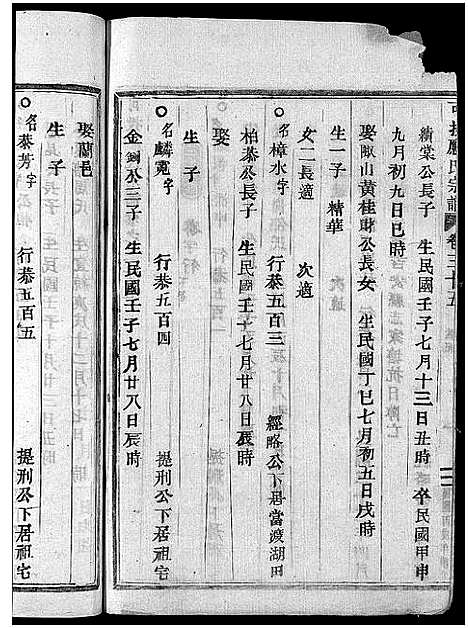 應氏宗譜 卷三十五
績棠公長子 生民國壬子七月十三日丑時 卒民國甲申
九月初九日巳時
娶畈山黃桂財公長女 生民國丁巳七月初五日戌時
生一子 精華
女二長適 次適
名樟水字 行恭五百三 經略公下居當渡湖田
柏恭公長子 生民國壬子七月廿八日辰時
娶
生子
名麟寬字 行恭五百四 提刑公下居祖宅
金鉰公三子 生民國壬子七月廿八日辰時
娶蘭邑
生子
名恭芳字 行恭五百五 提刑公下居祖宅